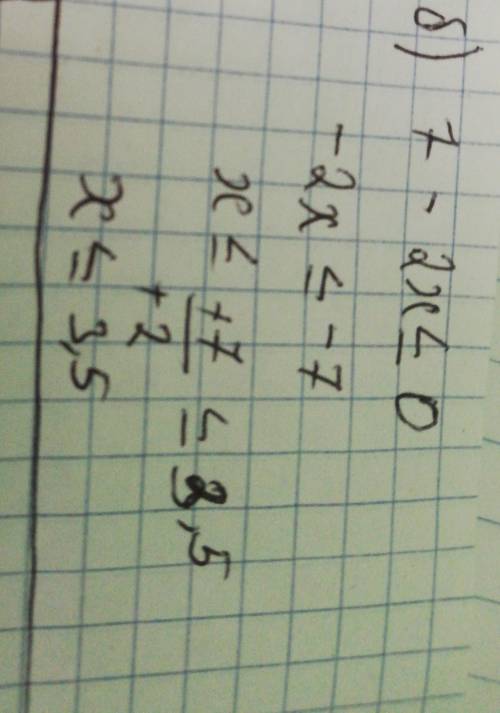 б) 7 - 2x ≤ 0
-2x ≤ -7
x ≤ +7/+2 ≤ 3,5
x ≤ 3,5